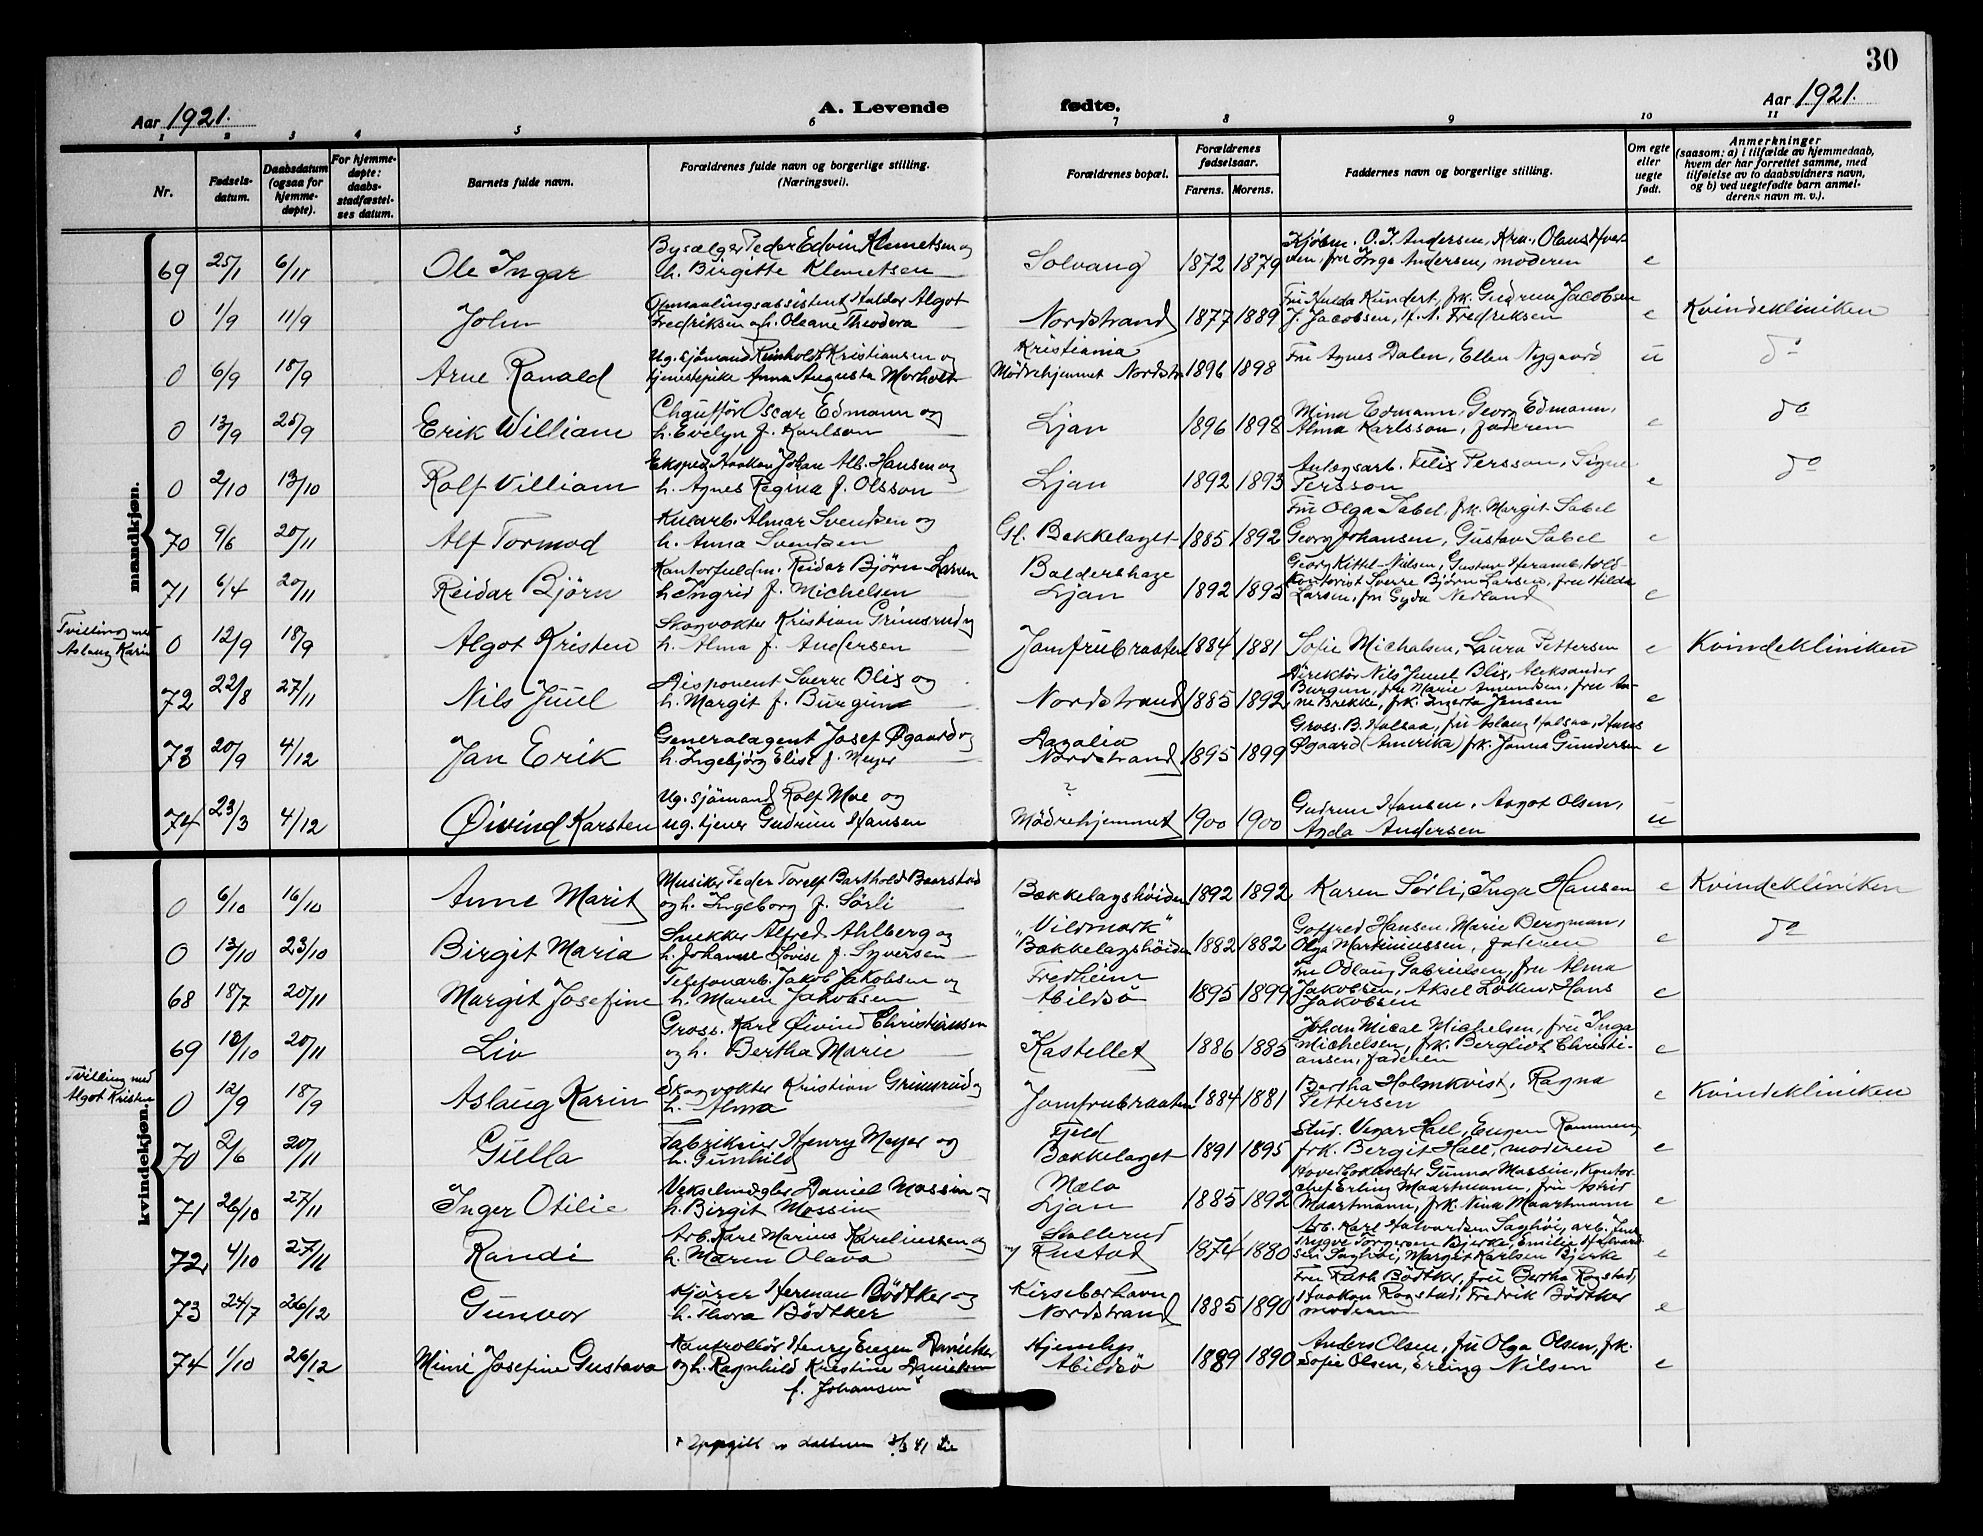 30
Aar 1921.
A. Levende fødte.
Aar 1921.
1 2 3 4 5 6 7 8 9 10 11
Nr.
Fødsels-
datum.
Daabsdatum
(ogsaa for
hjemme-
døpte).
For hjemme-
døpte:
daabs-
stadfæstel-
ses datum.
Barnets fulde navn.
Forældrenes fulde navn og borgerlige stilling.
(Næringsvei).
Forældrenes bopæl.
Forældrenes
fødselsaar.
Farens. Morens.
Faddernes navn og borgerlige stilling.
Om egte
eller
uegte
født.
Anmerkninger
(saasom: a) i tilfælde av hjemmedaab,
hvem der har forrettet samme, med
tilføielse av to daabsvidners navn,
og b) ved uegtefødte barn anmel-
derens navn m. v.).
mandkjøn.
69 25/1 6/11 Ole Ingar
Bysælger Peder Edvin Klemetsen og
h. Birgitte Klemetsen
Solvang 1872 1879
Kjøbm. O. J. Andersen, Olaus
fru Inga Andersen, moderen e
0 1/9 11/9 John
Opmaalingsassistent Haldor Algot
Fredriksen og h. Oleane Theodora
Nordstrand 1877 1889
Fru Hulda Kundert, frk. Gudrun Jacobsen
J. Jacobsen, H. N. Fredriksen e Kvindekliniken
0 6/9 18/9 Arne Ranald
Ug. sjömand Reinholdt Kristiansen og
tjenestepike Anna Augusta Morholt
Kristiania
Mödrehjemmet Nordstr. 1896 1898
Fru Agnes Dalen, Ellen Nygaard u do
0 13/9 25/9 Erik William
Chauffør Oscar Edmann og
h. Evelyn f. Karlson
Ljan 1896 1898
Minu Edmann, Georg Edmann,
Alma Karlsson, faderen e do
0 2/10 13/10 Rolf Villiam
Eksped. Haakon Johan Alb. Hansen og
h. Agnes Regina f. Olsson
Ljan 1892 1893
Anlægsarb. Felix Persson, Signe
Persson e do
70 9/6 20/11 Alf Tormod
Almar Svendsen og
h. Anna Svendsen
Gl. Bekkelaget 1885 1892
Fru Olga Sabel, frk. Margit Sabel
Georg Johansen, Gustav Sabel e
71 6/4 20/11 Reidar Björn
Kontorfuldm. Reidar Björn Larsen
h. Ingrid f. Michelsen
Baldershage
Ljan 1892 1893
Georg Kittel Nielsen, Gustav
Kontorist Sverre Björn Larsen, fru Hilda
Larsen, fru Gyda Nedland e
Tvilling med
Aslaug Karin
0 12/9 18/9 Algot Kristen
Skogvokter Kristian Grimsrud og
h. Alma f. Andersen
Jomfrubraaten 1884 1881
Sofie Michalsen, Laura Pettersen e Kvindekliniken
72 22/8 27/11 Nils Juul
Disponent Sverre Blix og
h. Margit f. Burgun
Nordstrand 1885 1892
Direktör Nils Juul Blix, Aleksander
Burgun, fru Marie Amundsen, fru An-
ne Brekke, frk. Ingerta Jensen e
73 20/9 4/12 Jan Erik
Generalagent Josef Øgaard og
h. Ingebjörg Elise f. Meyer
Dagalia
Nordstrand 1895 1899
Gross. B. Halsaa, fru Aslaug Halsaa, Hans
Øgaard (Amerika) frk. Janna Gundersen e
74 23/3 4/12 Øivind Karsten
Ug. sjömand Rolf Moe og
ug. tjener Gudrun Hansen
?
Mödrehjemmet 1900 1900
Gudrun Hansen, Aagot Olsen,
Agda Andersen u
kvindekjøn.
0 6/10 16/10 Anne Marit
Musiker Peder Torolf Barthold Baarstad
og h. Ingeborg f. Sörli
Bækkelagshöiden 1892 1892
Karen Sörli, Inga Hansen e Kvindekliniken
0 13/10 23/10 Birgit Maria
Snekker Alfred Ahlberg og
h. Johanne Lovise f. Syversen
"Vildmark"
Bækkelagshöiden 1882 1882
Gotfred Hansen, Marie Bergman,
Olga Martiniussen, faderen e do
68 18/7 20/11 Margit Josefine
Telefonarb. Jakob Jakobsen og
h. Maren Jakobsen
Fredheim
Abildsö 1895 1899
Fru Odlaug Gabrielsen, fru Alma
Jakobsen, Aksel Löken, Hans
Jakobsen e
69 12/10 20/11 Liv
Gross. Karl Öivind Christiansen
og h. Bertha Marie
Kastellet 1886 1885
Johan Micae Michelsen, fru Inga
Michelsen, frk. Bergliot Christi-
ansen, faderen e
Tvilling med
Algot Kristen
0 12/9 18/9 Aslaug Karin
Skogvokter Kristian Grimsrud og
h. Alma
Jomfrubraaten 1884 1881
Bertha Holmkvist, Ragna
Pettersen e Kvindekliniken
70 2/6 20/11 Gulla
Fabrikeier Henry Meyer og
h. Gunhild
Fjeld
Bækkelaget 1891 1895
Stud. Vegar Hall, Eugen Rammen,
frk. Bergit Hall, moderen e
71 26/10 27/11 Inger Otilie
Vekselmægler Daniel Mossin og
h. Birgit Mossin
Mælo
Ljan 1885 1892
Hovedbokholder Gunnar Mossin, Kontor-
chef Erling Maartmann, fru Astrid
Maartmann, frk. Nina Maartmann e
72 4/10 27/11 Randi
Arb. Karl Marius Karelinssen og
h. Maren Olava
Skullerud
Rustad 1874 1880
Arb. Karl Halvardsen Saghöi, arb.
Trygve Torgersen Bjerke, Emilie Halvard-
sen Saghöi, Margit Karlsen Bjerke e
73 24/7 26/12 Gunvor
Kjörer Herman Bödtker og
h. Thora Bödtker
Kirsebærhavn
Nordstrand 1885 1890
Fru Ruth Bödtker, fru Bertha Rogstad,
Haakon Rogstad, Fredrik Bödtker
moderen e
74 1/10 26/12 Mimi Josefine Gustava
Kontrollör Henry Eugen
og h. Ragnhild Kristine Danielsen
f. Johansen
Abildsö 1889 1890
Anders Olsen, fru Olga Olsen, frk.
Sofie Olsen, Erling Nilsen e